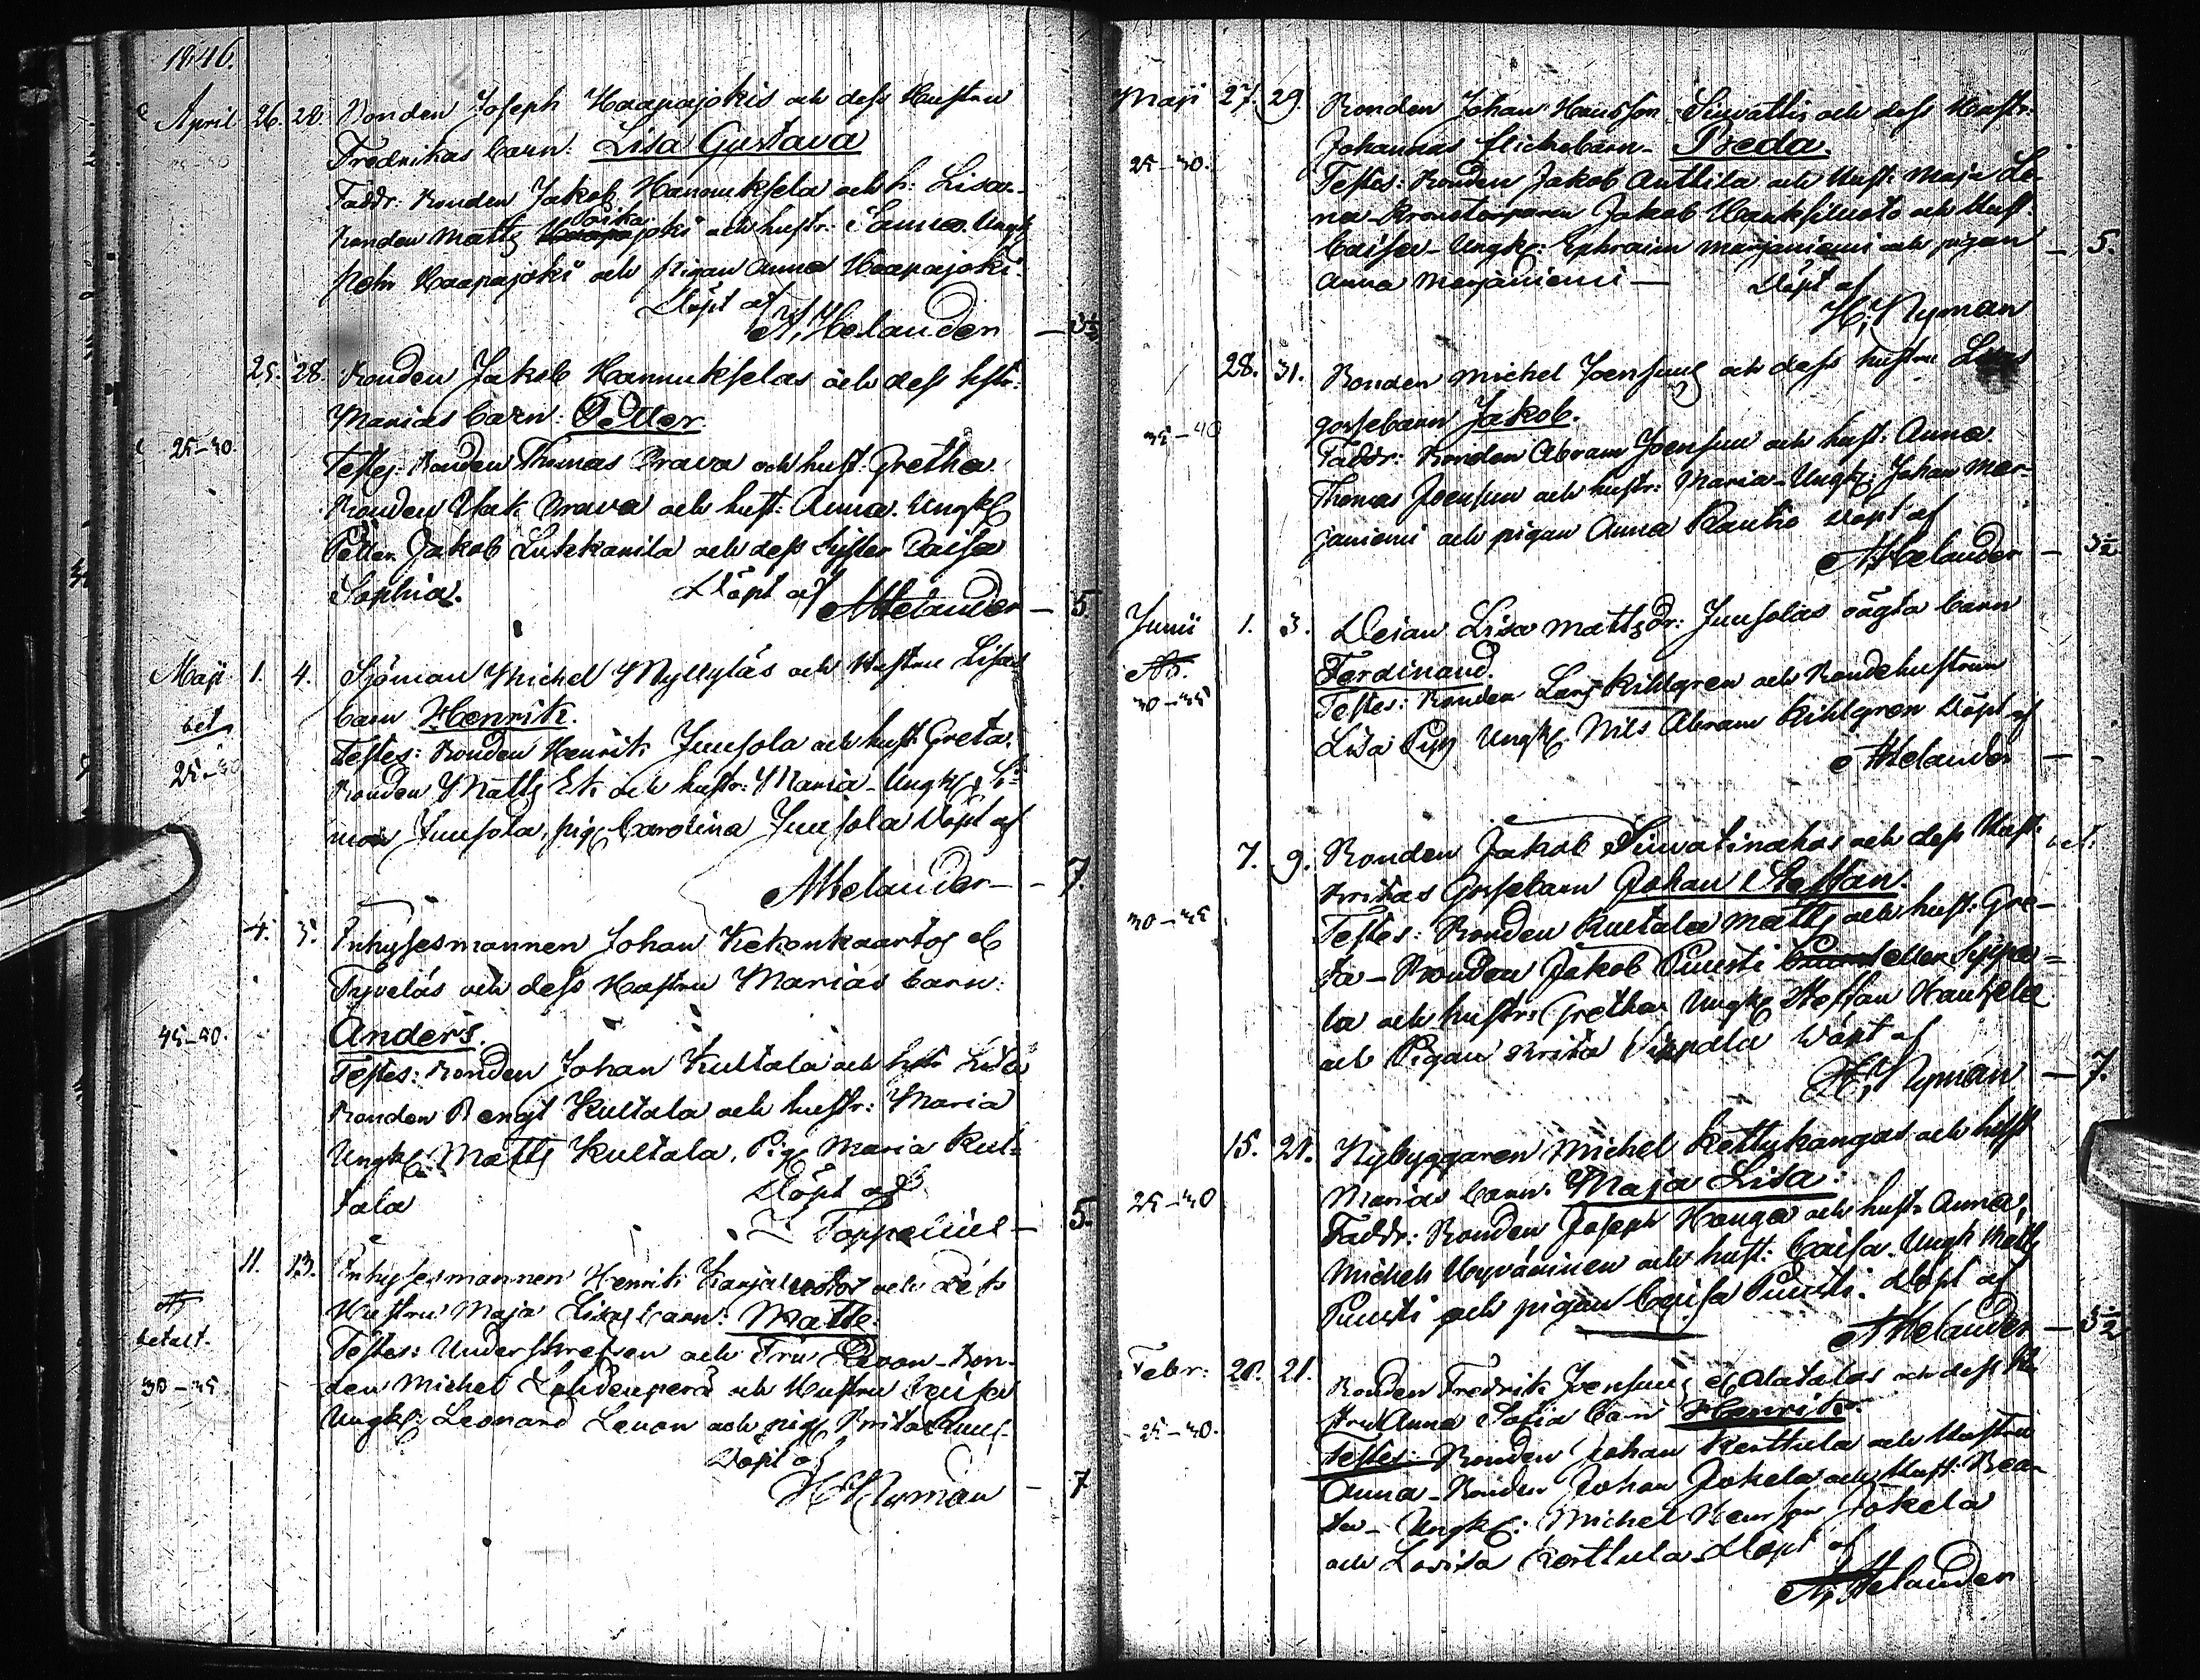 1846.
April 26. 28. Bonden Joseph Haapajokis och dess Hustru
Fredrikas barn: Lisa Gustava
Faddr: Bonden Jakob Hannuksela och h: Lisa
Bonden Matts joki och hustr: Sanna. Ungk
Petr Haapajoki och pigan Anna Haapajoki.
Döpt af
A, Helander — 3½
25. 28. Bonden Jakob Hannukselas och dess hstr:
Marias barn: Petter.
25–30 Testes: Bonden Thomas Orava och hust. Gretha
Bonden Isak Orava och hust: Anna. Ungk
Petter Jakob Lukkarila och dess Syster Caisa
Sophia. Döpt af AHelander — 5
Maji 1. 4. Sjöman Michel Myllyläs och Hustru Lisas
bet barn Henrik.
25–30 Testes: Bonden Henrik Juusola och hust Greta.
Bonden Matts Erk. och hustr: Maria – Ungk Si-
mon Juusola, pig Carolina Juusola Döpt af
AHelander — 7.
4. 5. Inhysesmannen Johan Kekonkaartos el
Typeläs och dess Hustru Marias barn:
45–50. Anders.
Testes: Bonden Johan Kultala och Lisa
Bonden Bengt Kultala och hustr: Maria
Ungk Matts Kultala, Pig Maria Kul-
tala Döpt af
Toppelius — 5.
11. 13. Inhysesmannen Henrik Karjaluotos och dess
Hustru Maja Lisas barn: Matts.
betalt. Testes: Underskrefven och Fru Levon – Bon-
30–35 den Michel Lahdenperä och Hustru Caisa
Ungk: Leonard Levon och pig Brita
Döpt af
HNyman — 7
Maji 27. 29. Bonden Johan Hansson Siuvattis och dess Hustr:
Johannas flickebarn – Breda.
25–30. Testes: Bonden Jakob Anttila och Hust: Maja Le-
na – Kronotorparen Jakob Hanksluoto och Hust:
Caisa – Ungkr: Ephraim Marjaniemi och pigan — 5.
Anna Marjaniemi — Döpt af
H, Nyman
28. 31. Bonden Michel Joensuus och dess hustru Lisas
35–40 gossebarn Jakob.
Faddr: Bonden Abram Joensuu och hust: Anna
Thomas Joensuu och hustr: Maria – Ungk: Johan Mar-
janiemi och pigan Anna Rautio Döpt af
AHelander — 3½
Junii 1. 3. Deian Lisa Mattsdr: Juusolas oägta barn
Ferdinand.
30–35 Testes: Bonden Lars Kihlgren och Bondehustrun
Lisa Pyy Ungk. Nils Abram Kihlgren Döpt af
AHelander — -
7. 9. Bonden Jakob Siuvatinahos och dess Hust:
Britas Gossebarn Johan Steffan.
30–35 Testes: Bonden Kultala Matts och hust: Gre-
ta – Bonden Jakob Puusti eller Syppe-
la och hustr: Gretha Ungk Steffan Hautsela
och Pigan Brita Vippala Döpt af
H, Nyman — 7.
15. 21. Nybyggaren Michel Kettukangas och hust
25–30 Marias barn: Maja Lisa.
Faddr: Bonden Joseph Hanga och hust: Anna,
Michel Hyväninen och hust: Caisa. Ungk Matts
Puusti och pigan Caisa Puusti. Döpt af
AHelander — 3½
Febr: 20. 21. Bonden Fredrik Joensuus el Alatalos och dess Hu
25–30. stru Anna Sofia barn Henrik.
Testes: Bonden Johan Kerttula och Hustru
Anna – Bonden Johan Jokela och Hust: Bea-
ta – Ungk: Michel Henrsson Jokela
och Lovisa Kerttula – Döpt af
A, Helander